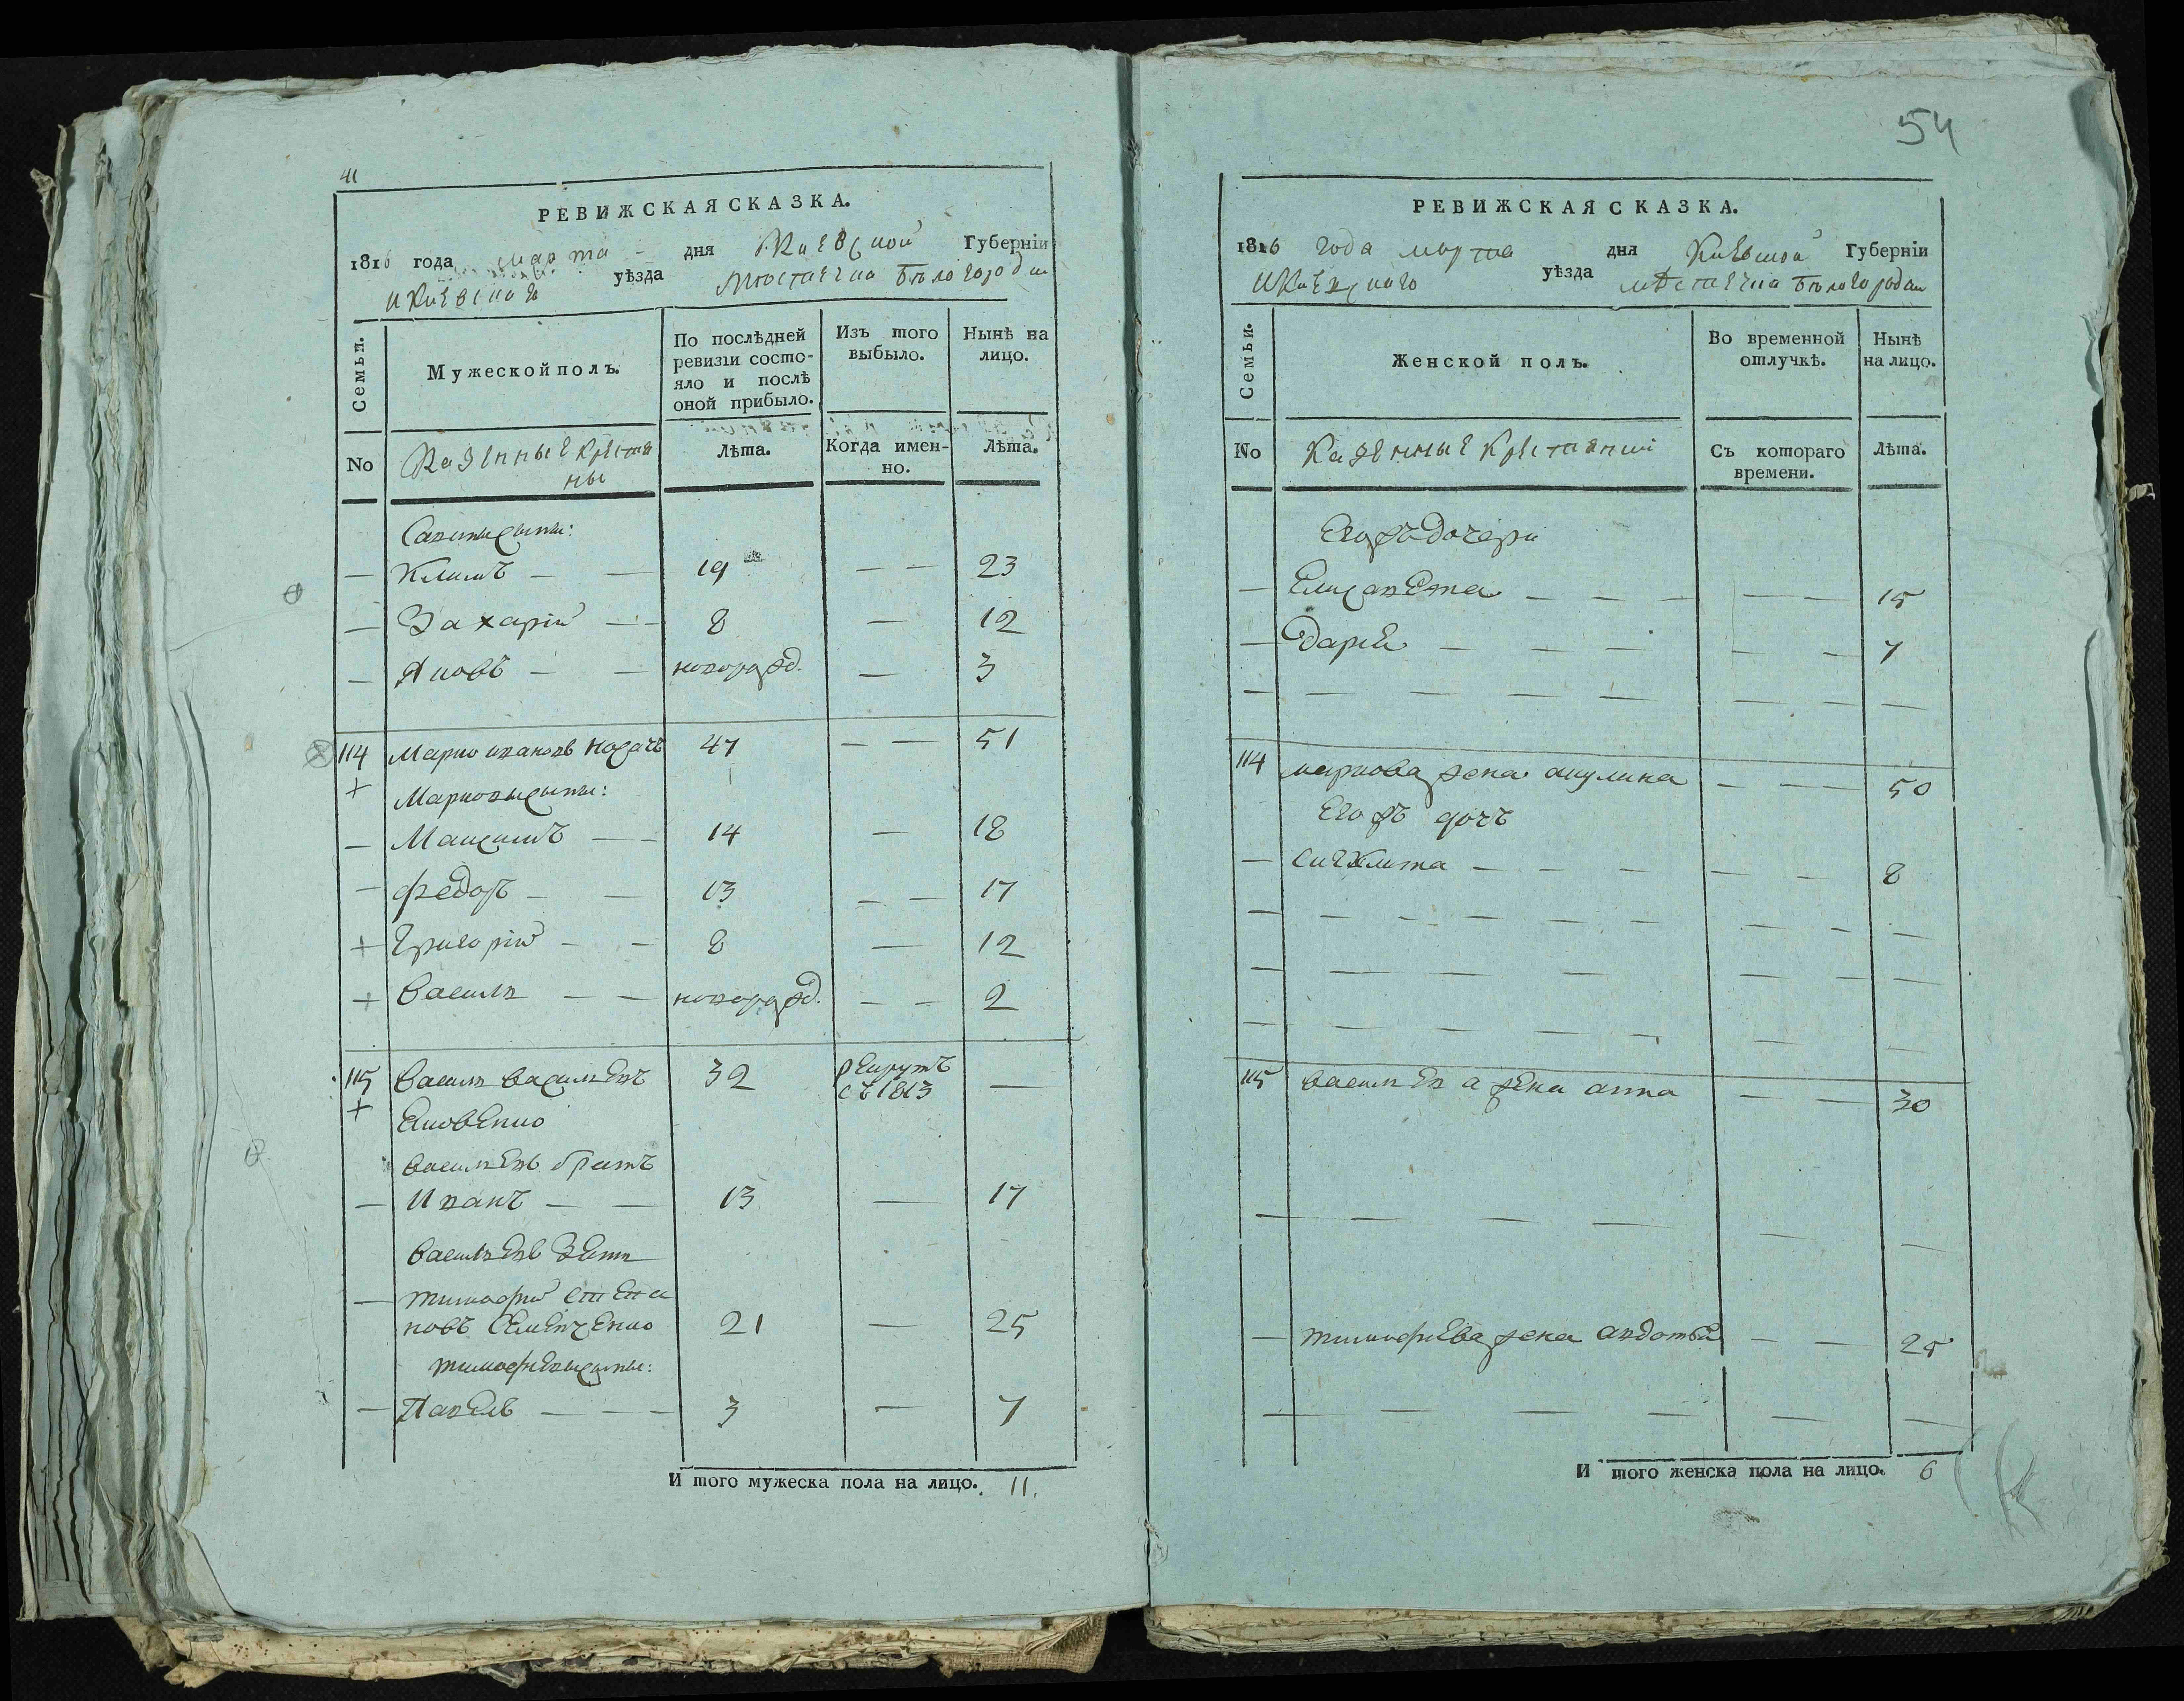 41
РЕВИЖСКАЯ СКАЗКА.
1816 года марта дня Киевской Губернїи
и Киевскаго уѣзда мѣстечка Бѣлогородки
Семьи.
Мужеской полъ.
По послѣдней ревизїи состо-
яло и послѣ
оной прибыло.
Изъ того
выбыло.
Нынѣ на
лицо.
No
Казенные крестья
ны
Лѣта.
Когда имен-
но.
Лѣта.
Савины сыны:
— Климъ — — 19 — — 23
— Захарій — — 8 — 12
— Яковъ — — новорожд. — 3
114 Марко Ивановъ Носачъ 47 — — 51
+ Марковы сыны:
— Максимъ — — 14 — 18
— Федоръ — — 13 — — 17
+ Григорій — — 8 — 12
+ Василь — — новорожд. — — 2
115 Василь Васильевъ 32 рекрутъ —
съ 1813
+ Яковенко
Васильевъ братъ
— Иванъ — — 13 — 17
Васильевъ зять
— Тимофѣй Степа
новъ Семенченко 21 — 25
Тимофѣевы сыны:
— Павелъ — — — 3 — 7
И того мужеска пола на лицо. 11.
54
РЕВИЖСКАЯ СКАЗКА.
1816 года марта дня Киевской Губернїи
и Киевскаго уѣзда мѣстечка Бѣлогородки
Семьи.
Женской полъ.
Во временной
отлучкѣ.
Нынѣ
на лицо.
No
Казенные крестьянки
Съ котораго
времени.
Лѣта.
Егожъ дочери
— Елисавета — — — — — 15
— Дарья — — — — — 7
— — — — — — — —
114 Маркова жена Акулина — — — 50
Егожъ дочь
— — — — — — 8
— — — — — — — — —
— — — — — — — —
— — — — — — — —
115 Васильева жена Анна — — 30
— — — — — —
— Тимофѣева жена Авдотья — — 25
— — — — — —
И того женска пола на лицо. 6